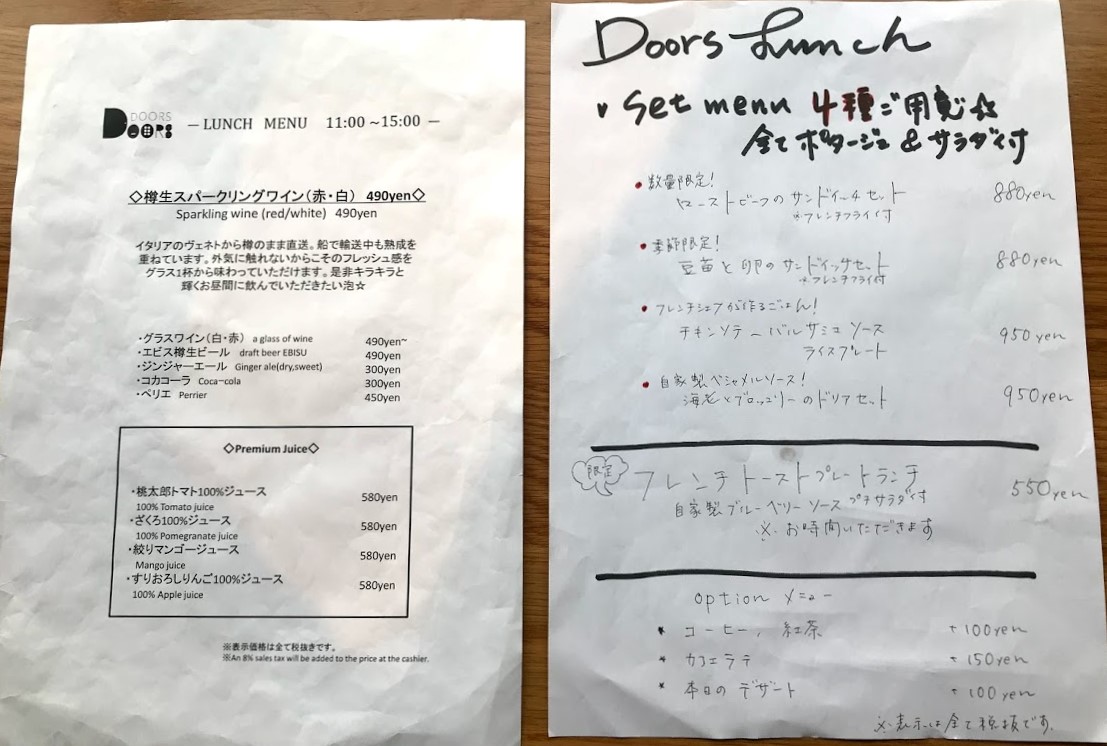 DOORS
DOORS
— LUNCH MENU 11:00 ~15:00 —
◇樽生スパークリングワイン(赤・白) 490yen◇
Sparkling wine (red/white) 490yen
イタリアのヴェネトから樽のまま直送。船で輸送中も熟成を
重ねています。外気に触れないからこそのフレッシュ感を
グラス1杯から味わっていただけます。是非キラキラと
輝くお昼間に飲んでいただきたい泡☆
・グラスワイン(白・赤) a glass of wine 490yen~
・エビス樽生ビール draft beer EBISU 490yen
・ジンジャーエール Ginger ale(dry,sweet) 300yen
・コカコーラ Coca-cola 300yen
・ペリエ Perrier 450yen
◇Premium Juice◇
・桃太郎トマト100%ジュース 580yen
100% Tomato juice
・ざくろ100%ジュース 580yen
100% Pomegranate juice
・絞りマンゴージュース 580yen
Mango juice
・すりおろしりんご100%ジュース 580yen
100% Apple juice
※表示価格は全て税抜きです。
※An 8% sales tax will be added to the price at the cashier.
Doors Lunch
Set menu 4種ご用意☆
全てポタージュ & サラダ付
• 数量限定!
ローストビーフのサンドイッチセット 880yen
*フレンチフライ付
• 季節限定!
豆苗と卵のサンドイッチセット 880yen
*フレンチフライ付
• フレンチシェフが作るごはん!
チキンソテー バルサミコソース 950yen
ライスプレート
• 自家製ベシャメルソース!
海老とブロッコリーのドリアセット 950yen
限定
フレンチトーストプレートランチ 550yen
自家製ブルーベリーソース プチサラダ付
※お時間いただきます
option メニュー
* コーヒー, 紅茶 +100yen
* カフェラテ +150yen
* 本日のデザート +100yen
※表示は全て税抜です。